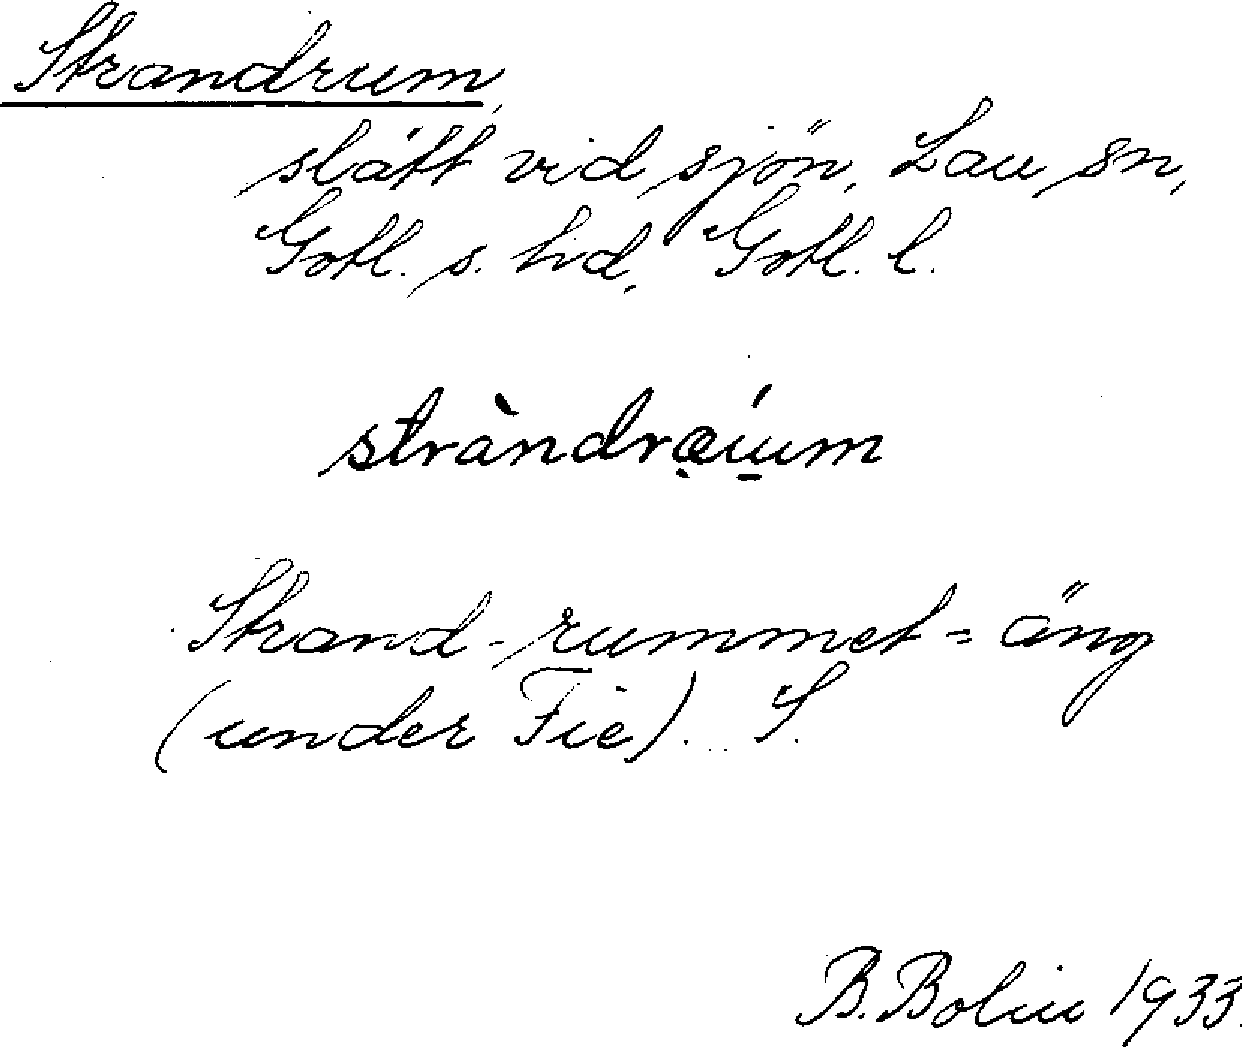 Strandrum,
slätt vid sjön, Lau sn,
Gotl. s. hd, Gotl. l.
stràndrœ̨́u̱m
Strand-rummet = äng
(under Fie). S.
B. Bolin 1933.